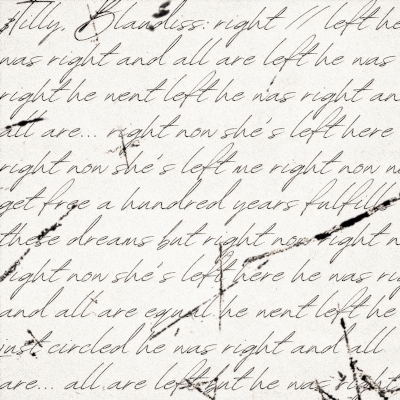 Tilly. Blaudiss: right // left he
was right and all are left he was
right he went left he was right an
all are... right now she's left here
right now she's left me right now n
get free a hundred years fulfill
these dreams but right now right n
right now she's left here he was ri
and all are equal he went left he
just circled he was right and all
are... all are left out he was right